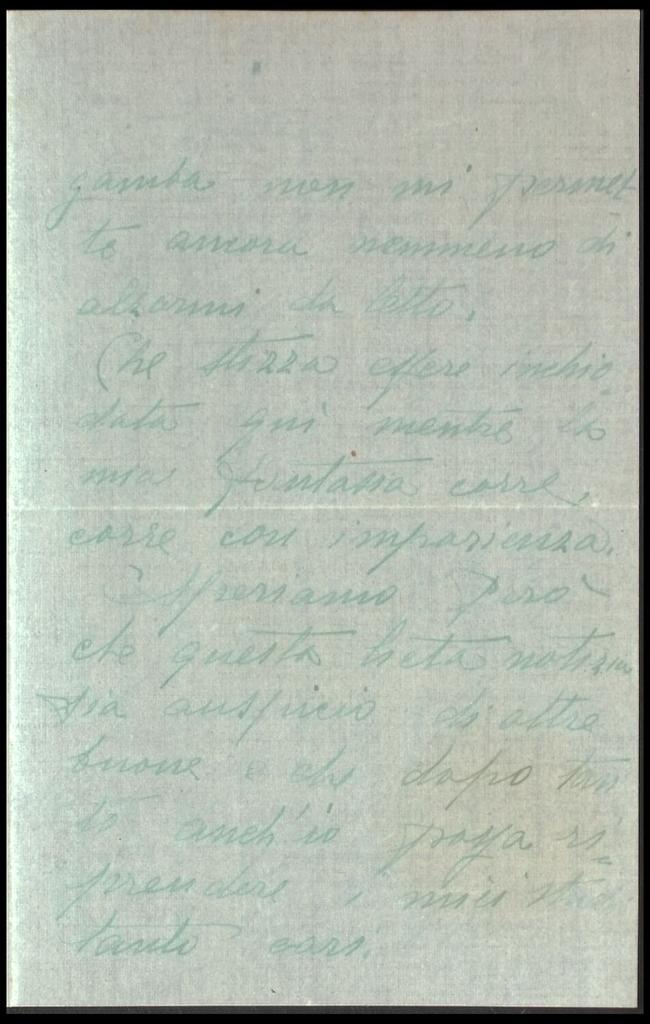 gamba non mi permet
te ancora nemmeno di
alzarmi da letto.
Che stizza essere inchio-
data qui mentre la
mia fantasia corre,
corre con impazienza.
Speriamo però
che questa lieta notizia
sia auspicio di altre
buone e che dopo tan
to anch'io possa ri-
prendere i miei studi
tanto cari.